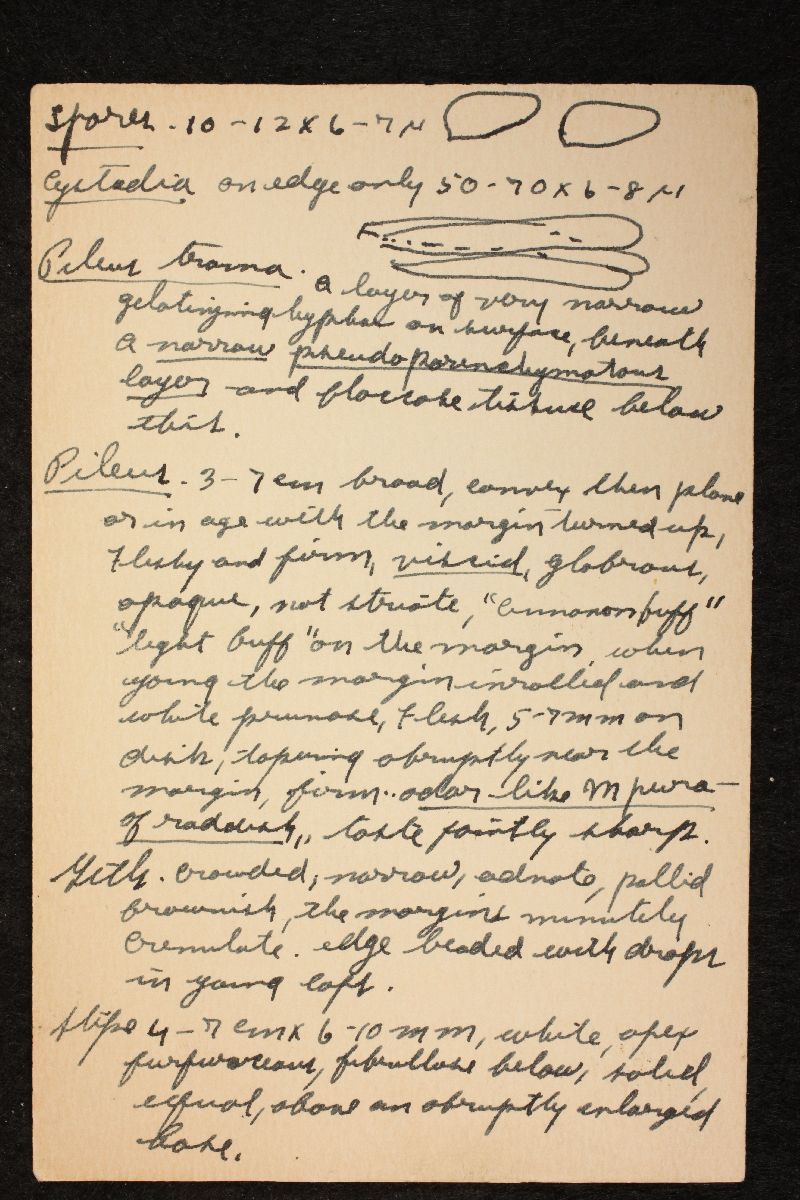 Spores. 10-12 x 6-7 µ
Cystidia on edge only 50-70 x 6-8 µ
Pileus trama. a layer of very narrow
gelatinizing hyphae on surface, beneath
a narrow pseudoparenchymatous
layer and floccose tissue below
this.
Pileus. 3-7 cm broad, convex then plane
or in age with the margin turned up,
fleshy and firm, viscid, glabrous,
opaque, not striate, "Cinnamon buff"
"light buff" on the margin, when
young the margin inrolled and
white pruinose, flesh, 5-7 mm on
disk, tapering abruptly near the
margin, firm. odor like M pura-
of raddish, taste faintly sharp.
Gills. Crowded, narrow, adnate, pallid
brownish, the margins minutely
crenulate. edge beaded with drops
in young caps.
Stipe 4-7 cm x 6-10 mm, white, apex
furfuraceous, fibrillose below, solid,
equal, above an abruptly enlarged
base.